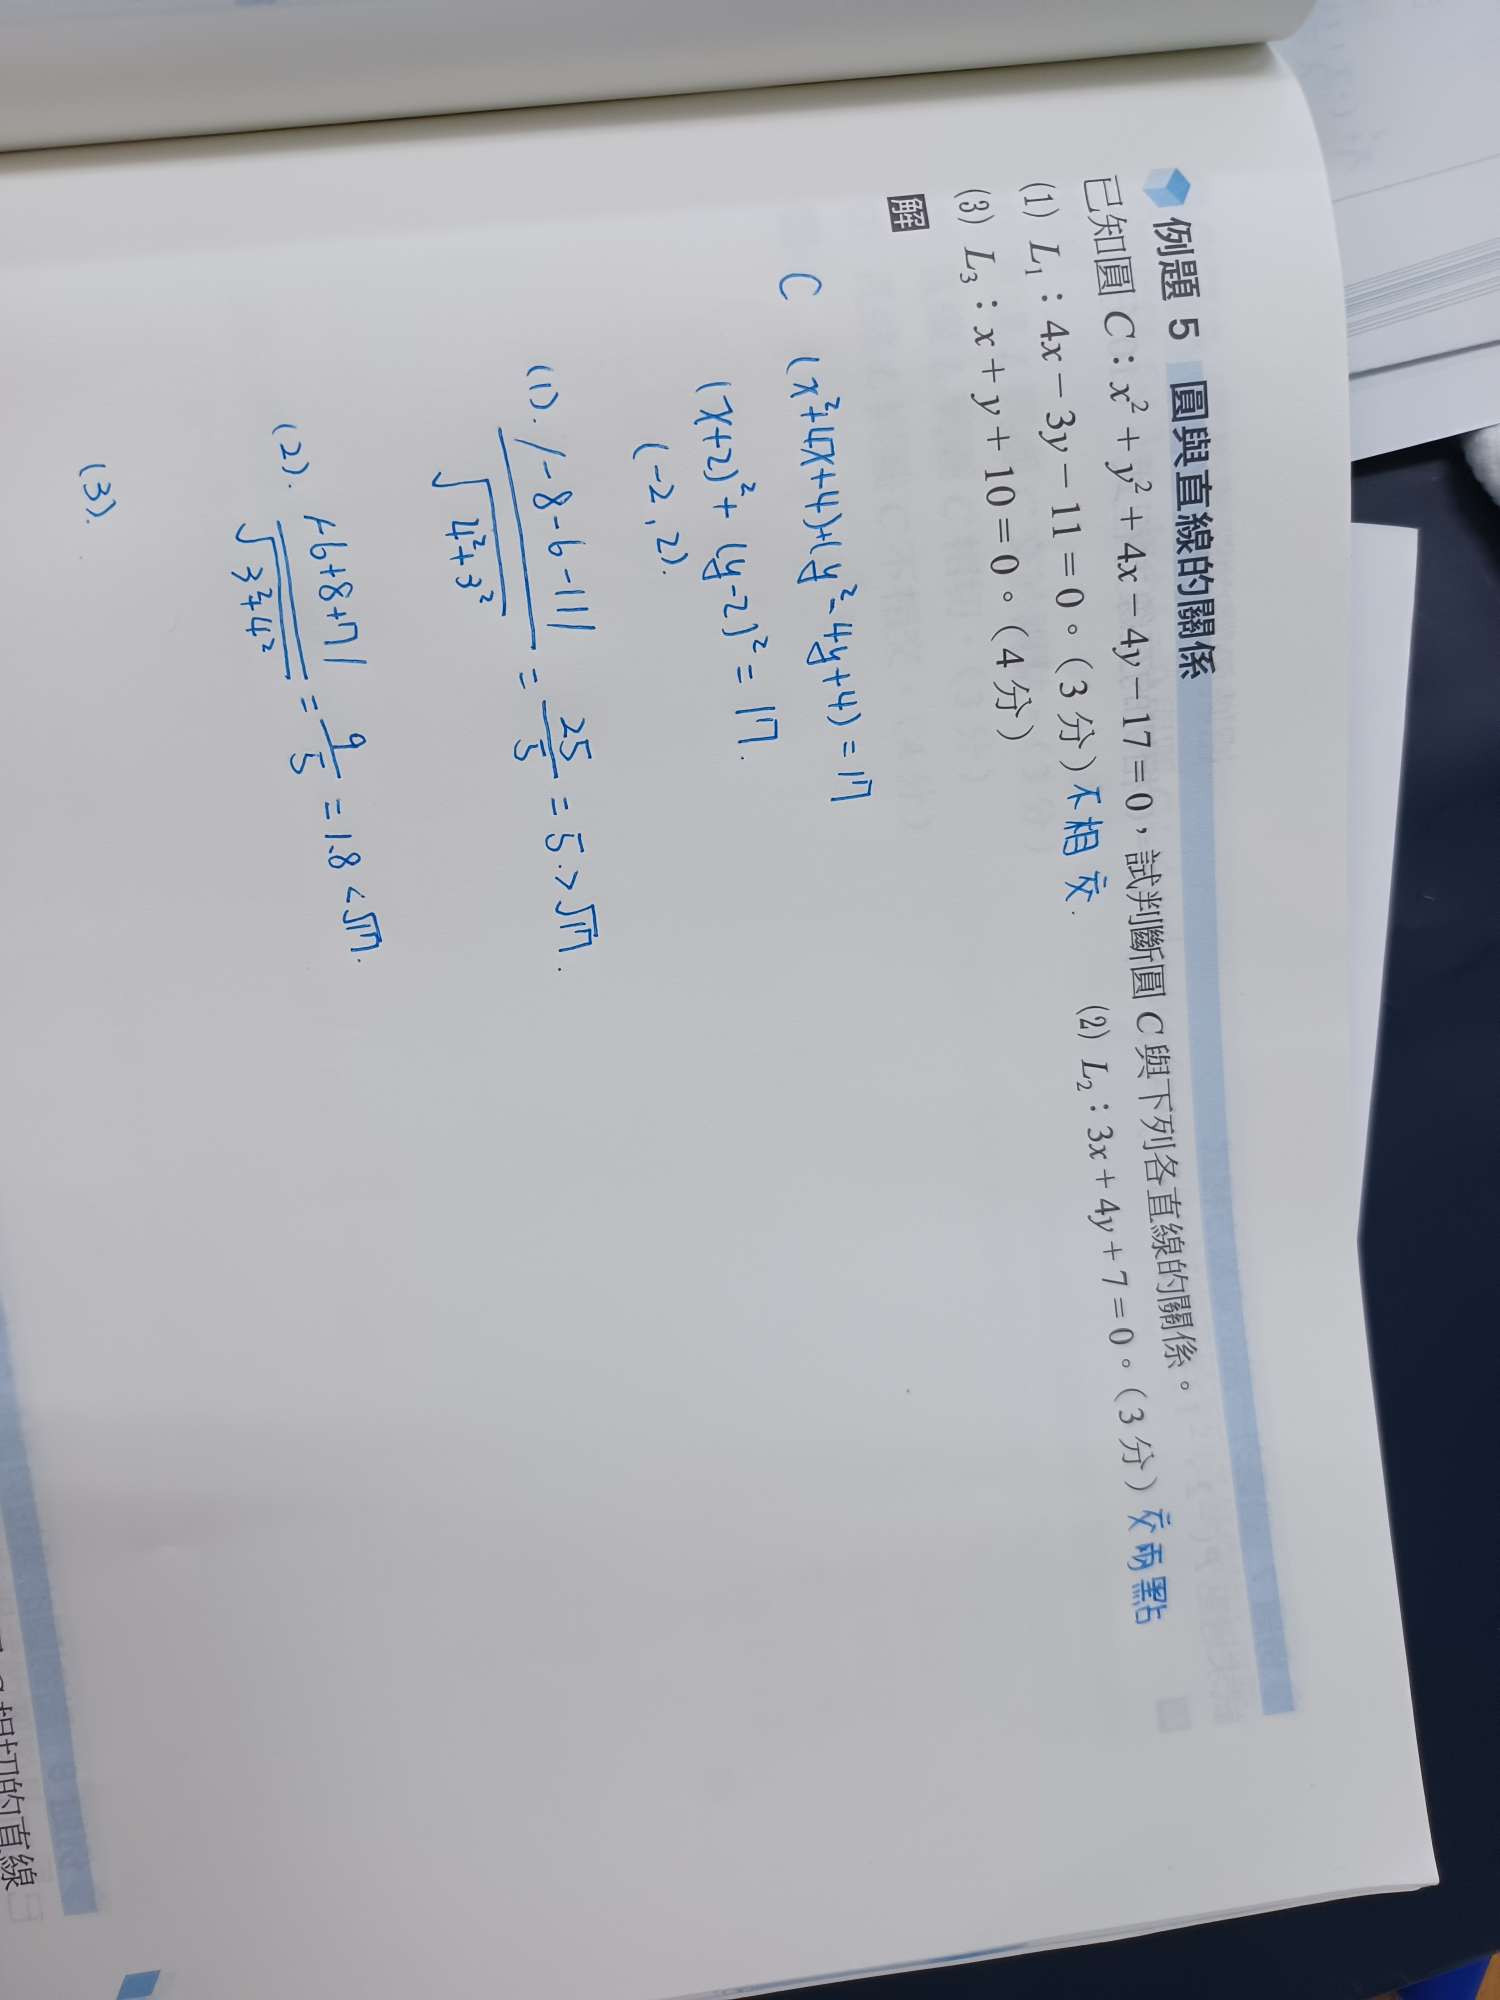 例題 5 圓與直線的關係
已知圓 C：x²＋y²＋4x－4y－17＝0，試判斷圓 C 與下列各直線的關係。
(1) L₁：4x－3y－11＝0。(3 分) 不相交. (2) L₂：3x＋4y＋7＝0。(3 分) 交兩點
(3) L₃：x＋y＋10＝0。(4 分)
解
C (x²+4x+4)+(y²-4y+4)=17
(x+2)²+(y-2)²=17.
(-2,2).
(1). |-8-6-11| / √4²+3² = 25/5 = 5.>√17.
(2). |-6+8+7| / √3²+4² = 9/5 = 1.8<√17.
(3).
相切的直線